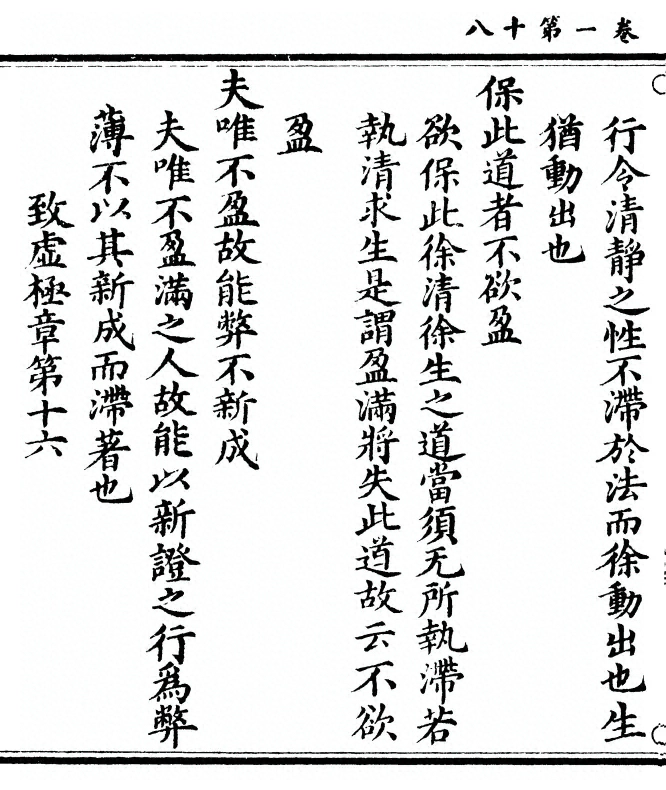 卷一第十八
行令清靜之性不滯於法而徐動出也生
猶動出也
保此道者不欲盈
欲保此徐清徐生之道當須无所執滯若
執清求生是謂盈滿將失此道故云不欲
盈
夫唯不盈故能弊不新成
夫唯不盈滿之人故能以新證之行爲弊
薄不以其新成而滯著也
致虛極章第十六